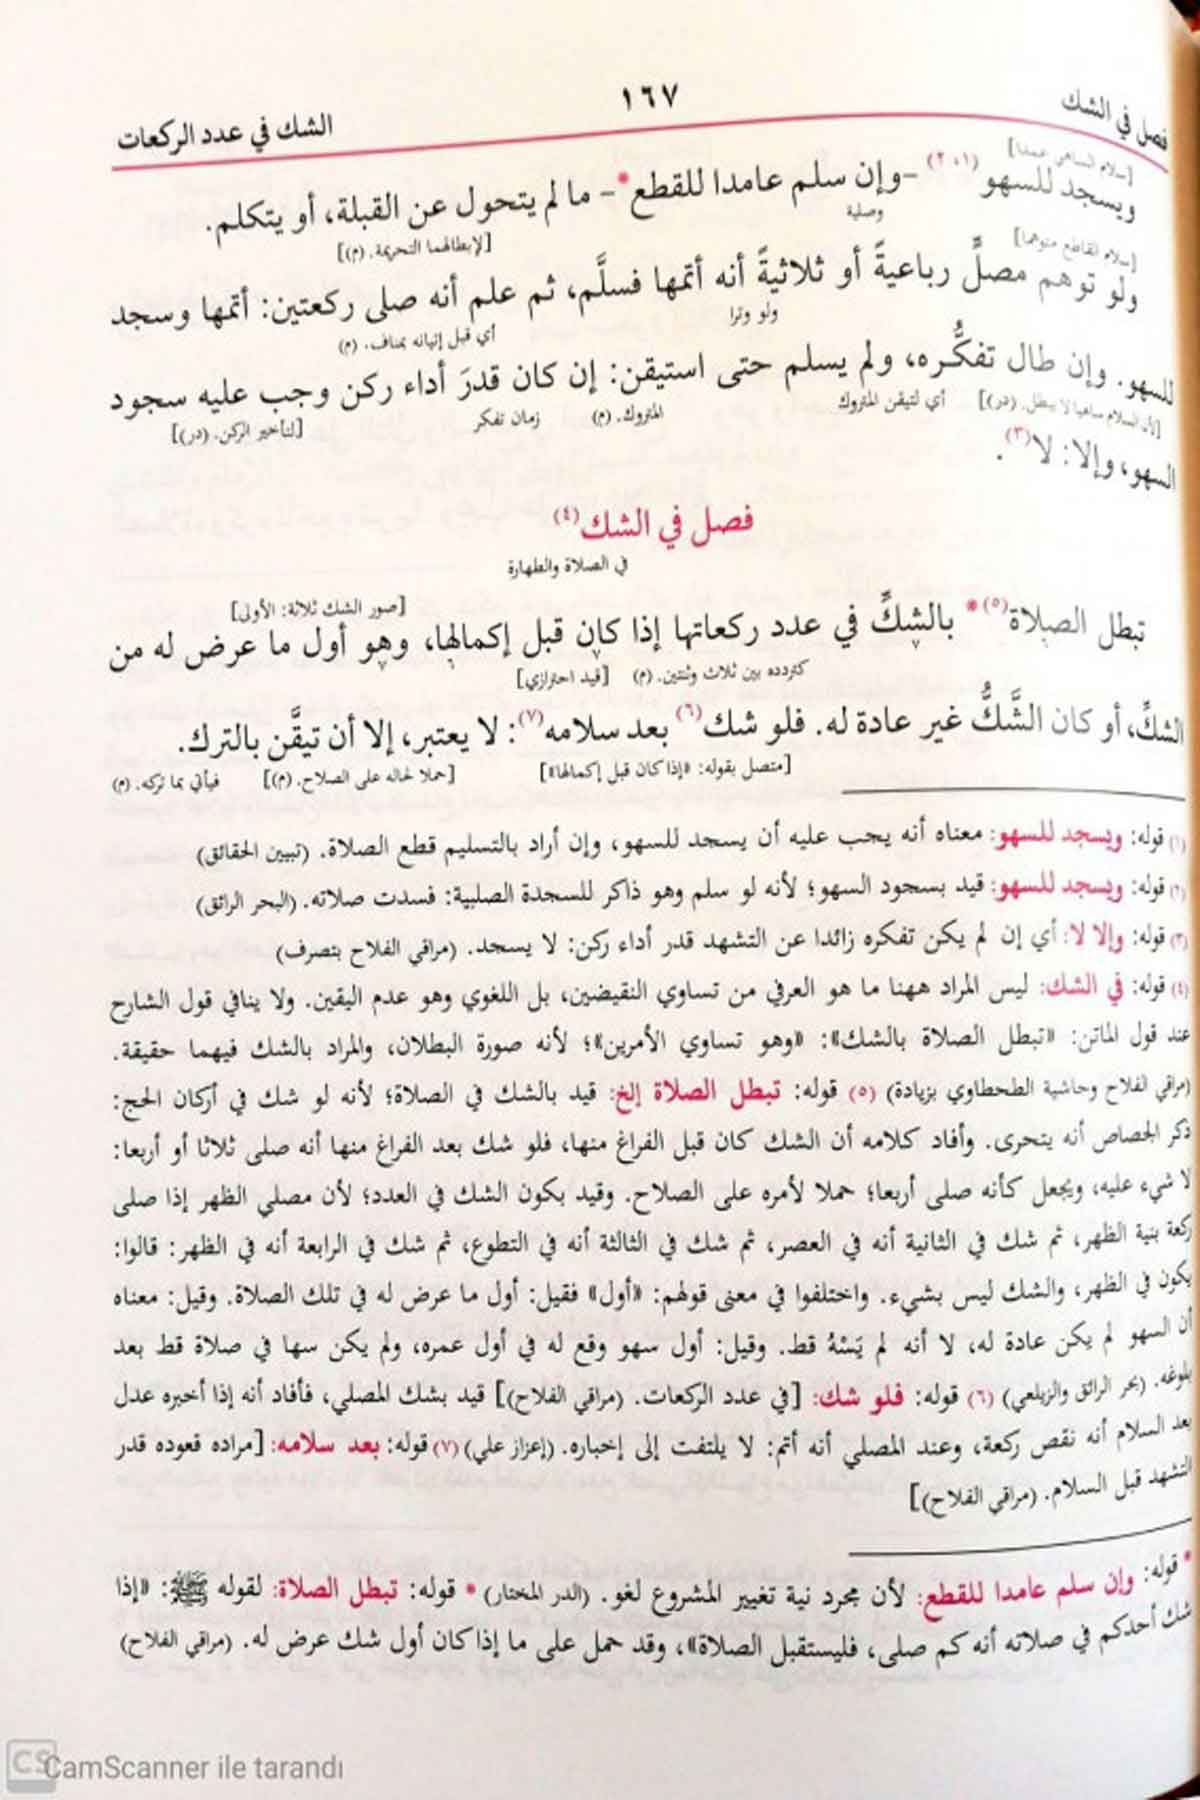 فصل في الشك
١٦٧
الشك في عدد الركعات
[سلام الساهي عمدا]
ويسجد للسهو (١، ٢) -وإن سلم عامدا للقطع*- ما لم يتحول عن القبلة، أو يتكلم.
وصلية [لإبطالهما التحريمة. (م)]
[سلام القاطع متوهما]
ولو توهم مصلٍّ رباعيةً أو ثلاثيةً أنه أتمها فسلَّم، ثم علم أنه صلى ركعتين: أتمها وسجد
ولو وترا أي قبل إتيانه بمناف. (م)
للسهو. وإن طال تفكُّره، ولم يسلم حتى استيقن: إن كان قدرَ أداء ركن وجب عليه سجود
[لأن السلام ساهيا لا يبطل. (در)] أي لتيقن المتروك المتروك. (م) زمان تفكر [لتأخير الركن. (در)]
السهو، وإلا: لا(٣).
فصل في الشك(٤)
في الصلاة والطهارة
[صور الشك ثلاثة: الأولى]
تبطل الصلاة(٥)* بالشكِّ في عدد ركعاتها إذا كان قبل إكمالها، وهو أول ما عرض له من
كتردده بين ثلاث وثنتين. (م) [قيد احترازي]
الشكِّ، أو كان الشَّكُّ غير عادة له. فلو شك(٦) بعد سلامه(٧): لا يعتبر، إلا أن تيقَّن بالترك.
[متصل بقوله: «إذا كان قبل إكمالها»] [حملا لحاله على الصلاح. (م)] فيأتي بما تركه. (م)
(١) قوله: ويسجد للسهو: معناه أنه يجب عليه أن يسجد للسهو، وإن أراد بالتسليم قطع الصلاة. (تبيين الحقائق)
(٢) قوله: ويسجد للسهو: قيد بسجود السهو؛ لأنه لو سلم وهو ذاكر للسجدة الصلبية: فسدت صلاته. (البحر الرائق)
(٣) قوله: وإلا لا: أي إن لم يكن تفكره زائدا عن التشهد قدر أداء ركن: لا يسجد. (مراقي الفلاح بتصرف)
(٤) قوله: في الشك: ليس المراد ههنا ما هو العرفي من تساوي النقيضين، بل اللغوي وهو عدم اليقين. ولا ينافي قول الشارح
عند قول الماتن: «تبطل الصلاة بالشك»: «وهو تساوي الأمرين»؛ لأنه صورة البطلان، والمراد بالشك فيهما حقيقة.
(مراقي الفلاح وحاشية الطحطاوي بزيادة) (٥) قوله: تبطل الصلاة إلخ: قيد بالشك في الصلاة؛ لأنه لو شك في أركان الحج:
ذكر الجصاص أنه يتحرى. وأفاد كلامه أن الشك كان قبل الفراغ منها، فلو شك بعد الفراغ منها أنه صلى ثلاثا أو أربعا:
لا شيء عليه، ويجعل كأنه صلى أربعا؛ حملا لأمره على الصلاح. وقيد بكون الشك في العدد؛ لأن مصلي الظهر إذا صلى
ركعة بنية الظهر، ثم شك في الثانية أنه في العصر، ثم شك في الثالثة أنه في التطوع، ثم شك في الرابعة أنه في الظهر: قالوا:
يكون في الظهر، والشك ليس بشيء. واختلفوا في معنى قولهم: «أول» فقيل: أول ما عرض له في تلك الصلاة. وقيل: معناه
أن السهو لم يكن عادة له، لا أنه لم يَسْهُ قط. وقيل: أول سهو وقع له في أول عمره، ولم يكن سها في صلاة قط بعد
بلوغه. (بحر الرائق والزيلعي) (٦) قوله: فلو شك: [في عدد الركعات. (مراقي الفلاح)] قيد بشك المصلي، فأفاد أنه إذا أخبره عدل
بعد السلام أنه نقص ركعة، وعند المصلي أنه أتم: لا يلتفت إلى إخباره. (إعزاز علي) (٧) قوله: بعد سلامه: [مراده قعوده قدر
التشهد قبل السلام. (مراقي الفلاح)]
* قوله: وإن سلم عامدا للقطع: لأن مجرد نية تغيير المشروع لغو. (الدر المختار) * قوله: تبطل الصلاة: لقوله ﷺ: «إذا
شك أحدكم في صلاته أنه كم صلى، فليستقبل الصلاة»، وقد حمل على ما إذا كان أول شك عرض له. (مراقي الفلاح)
CS CamScanner ile tarandı